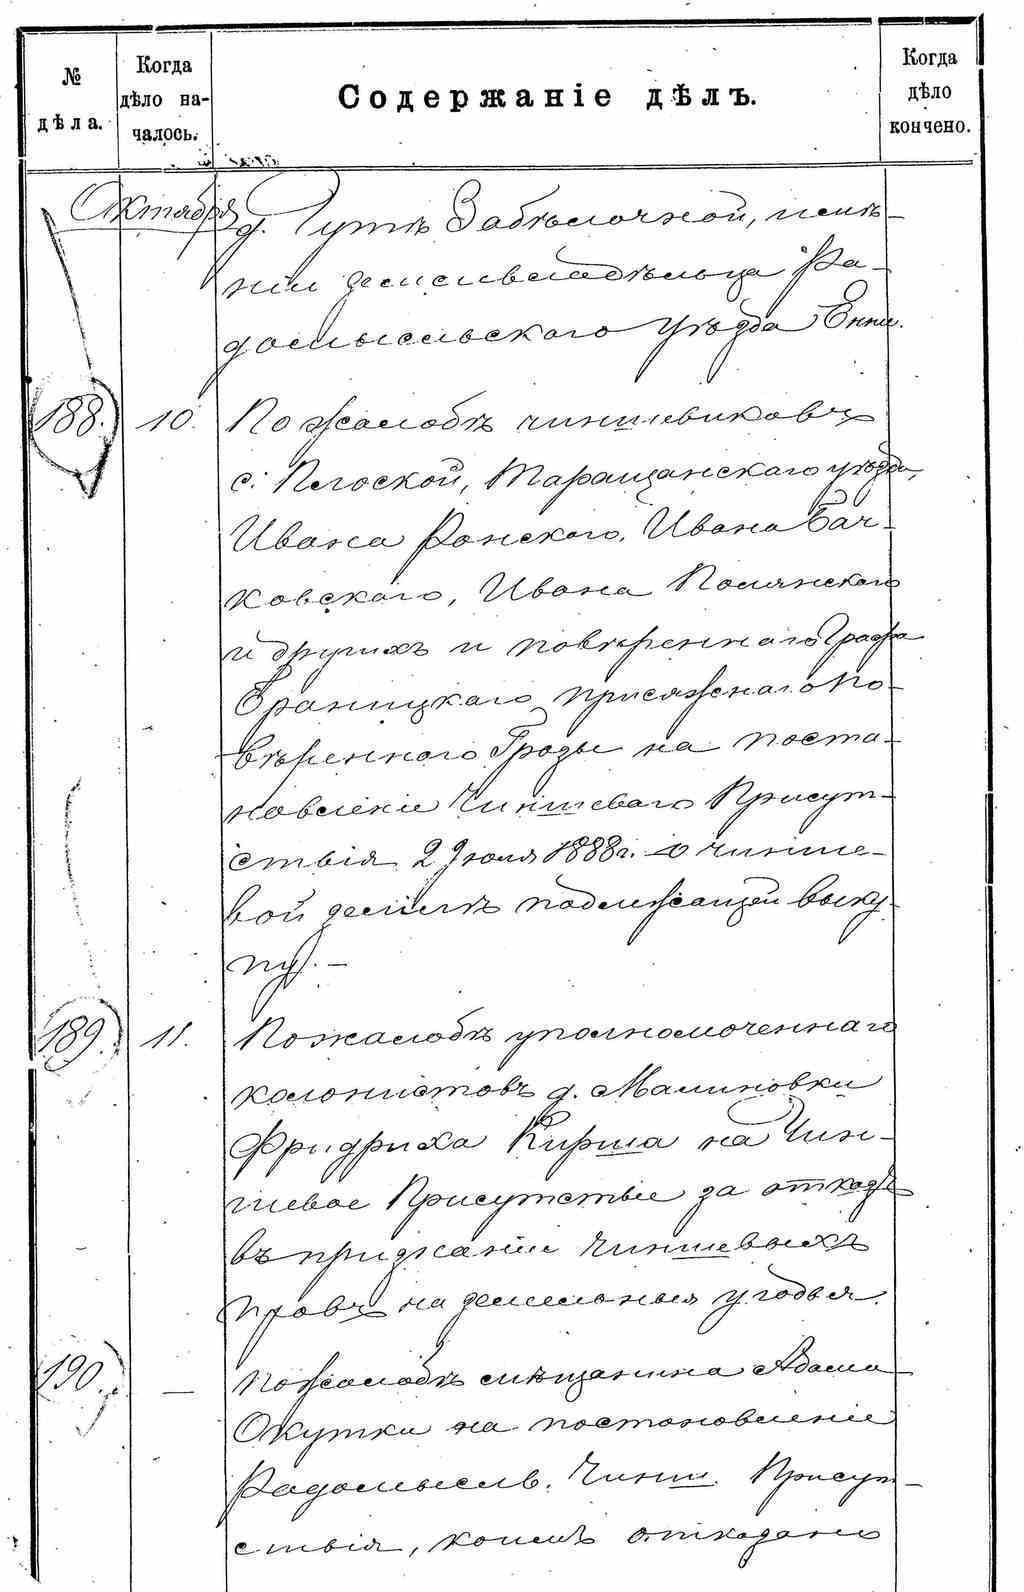 № дѣла.
Когда дѣло началось.
Содержаніе дѣлъ.
Когда дѣло кончено.
Октября
д. Гутѣ Забѣлочной, имѣ-
ніи землевладѣльца Ра-
домысльскаго уѣзда Енни.
188. 10. По жалобѣ чиншевиковъ
с. Плоской, Таращанскаго уѣзда,
Ивана Ронскаго, Ивана Бач-
ковскаго, Ивана Полянскаго
и другихъ и повѣреннаго Графа
Браницкаго присяжнаго по-
вѣреннаго Грозы на поста-
новленіе Чиншеваго Присут-
ствія 2 Іюля 1888 г. о чинше-
вой землѣ подлежащей выку-
пу. —
189. 11. По жалобѣ уполномоченнаго
колонистовъ д. Малиновки
Фридриха Кирша на Чин-
шевое Присутствіе за отказъ
въ признаніи чиншевыхъ
правъ на земельныя угодья.
190. — По жалобѣ мѣщанина Адама
Окутки на постановленіе
Радомысль. Чинш. Присут-
ствія, коимъ отказано